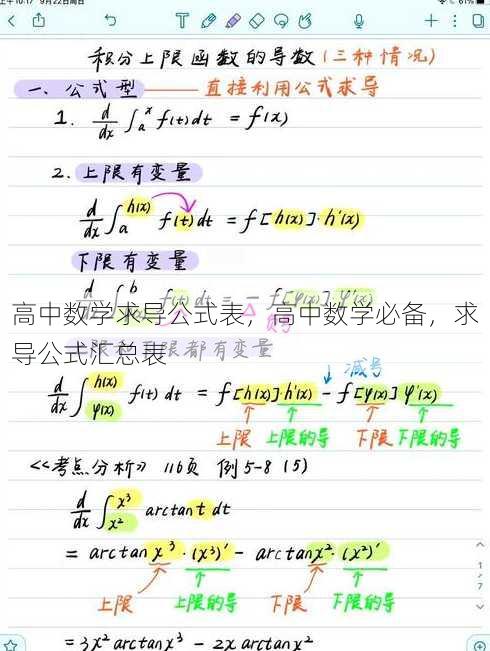 上午10:17 9月22日周日
61%
积分上限函数的导数(三种情况)
一、公式型——直接利用公式求导
1. d/dx ∫ₐˣ f(t)dt = f(x)
2. 上限有变量
d/dx ∫ₐ^h(x) f(t)dt = f[h(x)]·h'(x)
下限有变量
d/dx ∫ b f(t)dt = - f[φ(x)]·φ'(x)
高中数学求导公式表，高中数学必备，求
导公式汇总表
限都有变量
减号
d/dx ∫_φ(x)^h(x) f(t)dt = f[h(x)]·h'(x) - f[φ(x)]φ'(x)
上限 上限的导 下限 下限的导
<<考点分析>> 116页 例5-8 (5)
d/dx ∫_x²^x³ arctan t dt
= arctan x³·(x³)' - arctan x²·(x²)'
上限 上限的导 下限 下限的导
1/7
= 3x² arctan x³ - 2x arctan x²